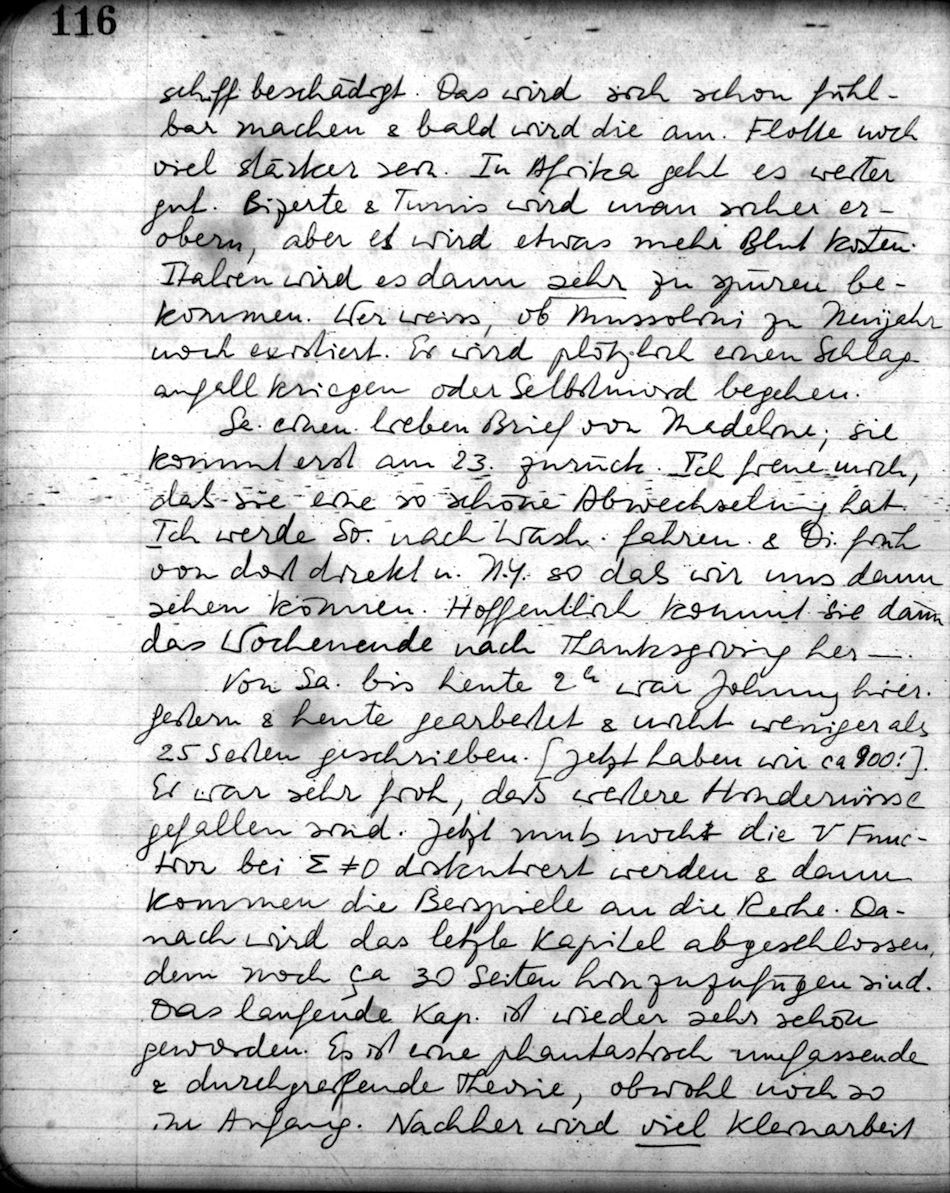 116
schiff beschädigt. Das wird sich schon fühl-
bar machen & bald wird die am. Flotte noch
viel stärker sein. In Afrika geht es weiter
gut. Bizerte & Tunis wird man sicher er-
obern, aber es wird etwas mehr Blut kosten.
Italien wird es dann sehr zu spüren be-
kommen. Wer weiss, ob Mussolini zu Neujahr
noch existiert. Er wird plötzlich einen Schlag
anfall kriegen oder Selbstmord begehen.
Se. einen lieben Brief von Madeline; sie
kommt erst am 23. zurück. Ich freue mich,
daß sie eine so schöne Abwechselung hat.
Ich werde So. nach Wash. fahren. & Di. früh
von dort direkt n. N.Y. so daß wir uns dann
sehen können. Hoffentlich kommt sie dann
das Wochenende nach Thanksgiving her —.
Von Sa. bis heute 2h war Johnny hier.
gestern & heute gearbeitet & nicht weniger als
25 Seiten geschrieben. [Jetzt haben wir ca 900!].
Er war sehr froh, daß weitere Hindernisse
gefallen sind. Jetzt muß noch die V Func-
tion bei Σ ≠ 0 diskutiert werden & dann
kommen die Beispiele an die Reihe. Da-
nach wird das letzte Kapitel abgeschlossen,
dem noch ca 30 Seiten hinzuzufügen sind.
Das laufende Kap. ist wieder sehr schön
geworden. Es ist eine phantastisch umfassende
& durchgreifende Theorie, obwohl noch so
im Anfang. Nachher wird viel Kleinarbeit